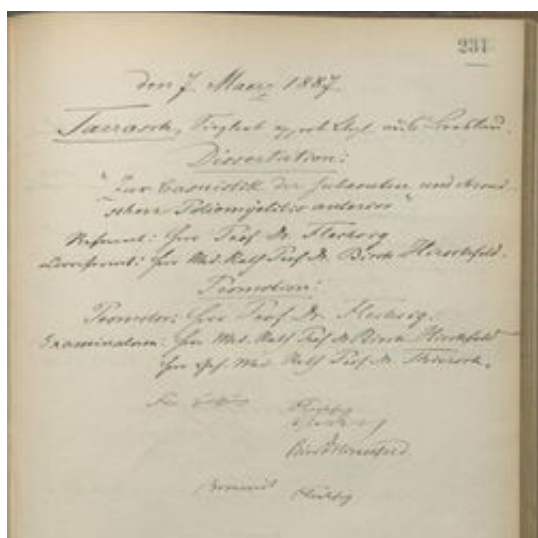 231
den 7. Maerz 1887.
Tarrasch, Siegbert aus Breslau.
Dissertation:
"Zur Casuistik der subacuten und chroni-
schen Poliomyelitis anterior"
Referent: Herr Prof. Dr. Flechsig
Correferent: Herr Med. Rath Prof. Dr. Birch Hirschfeld.
Promotion:
Promotor: Herr Prof. Dr. Flechsig.
Examinatoren: Herr Med. Rath Prof. Dr. Birch Hirschfeld
Herr Geh. Med. Rath Prof. Dr. Thiersch.
Flechsig
Birch Hirschfeld
Flechsig